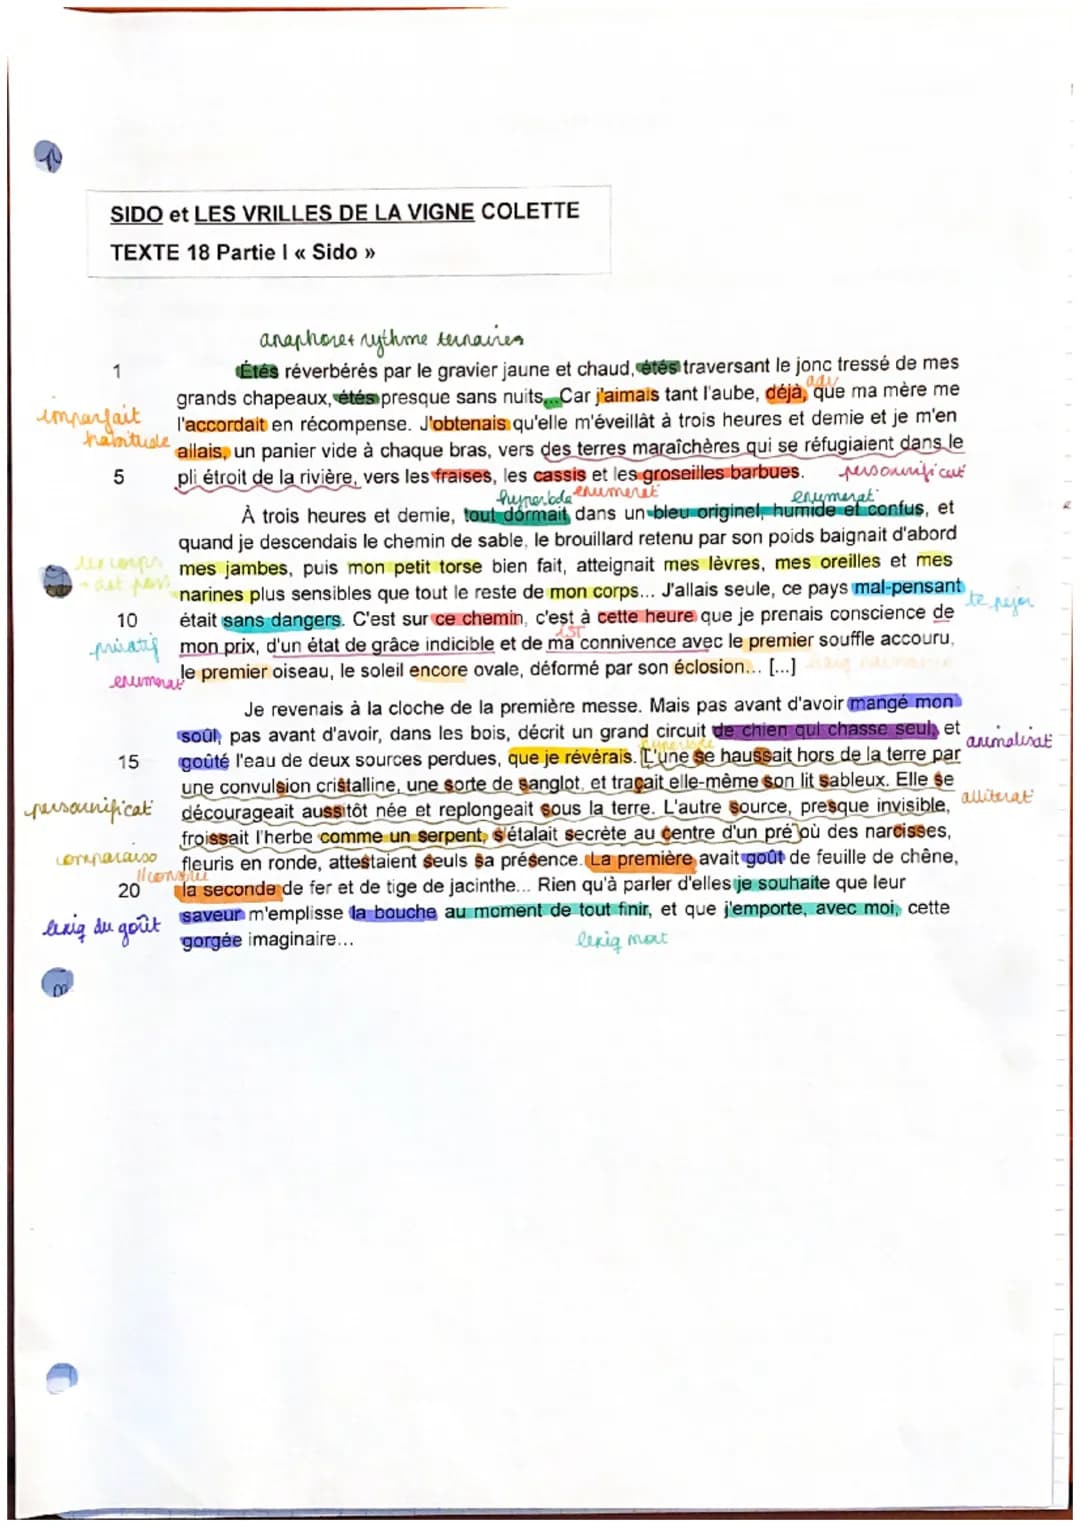 SIDO et LES VRILLES DE LA VIGNE COLETTE
TEXTE 18 Partie I « Sido »
anaphore+ rythme ternaires
1 Étés réverbérés par le gravier jaune et chaud, étés traversant le jonc tressé de mes
adv
grands chapeaux, étés presque sans nuits... Car j'aimais tant l'aube, déjà, que ma mère me
imparfait
l'accordait en récompense. J'obtenais qu'elle m'éveillât à trois heures et demie et je m'en
habitude
allais, un panier vide à chaque bras, vers des terres maraîchères qui se réfugiaient dans le
5 pli étroit de la rivière, vers les fraises, les cassis et les groseilles barbues. personnificat°
hyperbole enumerat° enumerat°
À trois heures et demie, tout dormait dans un bleu originel, humide et confus, et
quand je descendais le chemin de sable, le brouillard retenu par son poids baignait d'abord
lex corps
mes jambes, puis mon petit torse bien fait, atteignait mes lèvres, mes oreilles et mes
+ det poss
narines plus sensibles que tout le reste de mon corps... J'allais seule, ce pays mal-pensant
te pejor
10 était sans dangers. C'est sur ce chemin, c'est à cette heure que je prenais conscience de
privatif mon prix, d'un état de grâce indicible et de ma connivence avec le premier souffle accouru,
enumerat° le premier oiseau, le soleil encore ovale, déformé par son éclosion... [...]
Je revenais à la cloche de la première messe. Mais pas avant d'avoir mangé mon
soûl, pas avant d'avoir, dans les bois, décrit un grand circuit de chien qui chasse seul, et
animalisat°
hyperbole
15 goûté l'eau de deux sources perdues, que je révérais. L'une se haussait hors de la terre par
une convulsion cristalline, une sorte de sanglot, et traçait elle-même son lit sableux. Elle se
alliterat°
personnificat° décourageait aussitôt née et replongeait sous la terre. L'autre source, presque invisible,
froissait l'herbe comme un serpent, s'étalait secrète au centre d'un pré où des narcisses,
comparaiso
fleuris en ronde, attestaient seuls sa présence. La première avait goût de feuille de chêne,
20 la seconde de fer et de tige de jacinthe... Rien qu'à parler d'elles je souhaite que leur
lexiq du goût saveur m'emplisse la bouche au moment de tout finir, et que j'emporte, avec moi, cette
gorgée imaginaire... lexiq mort